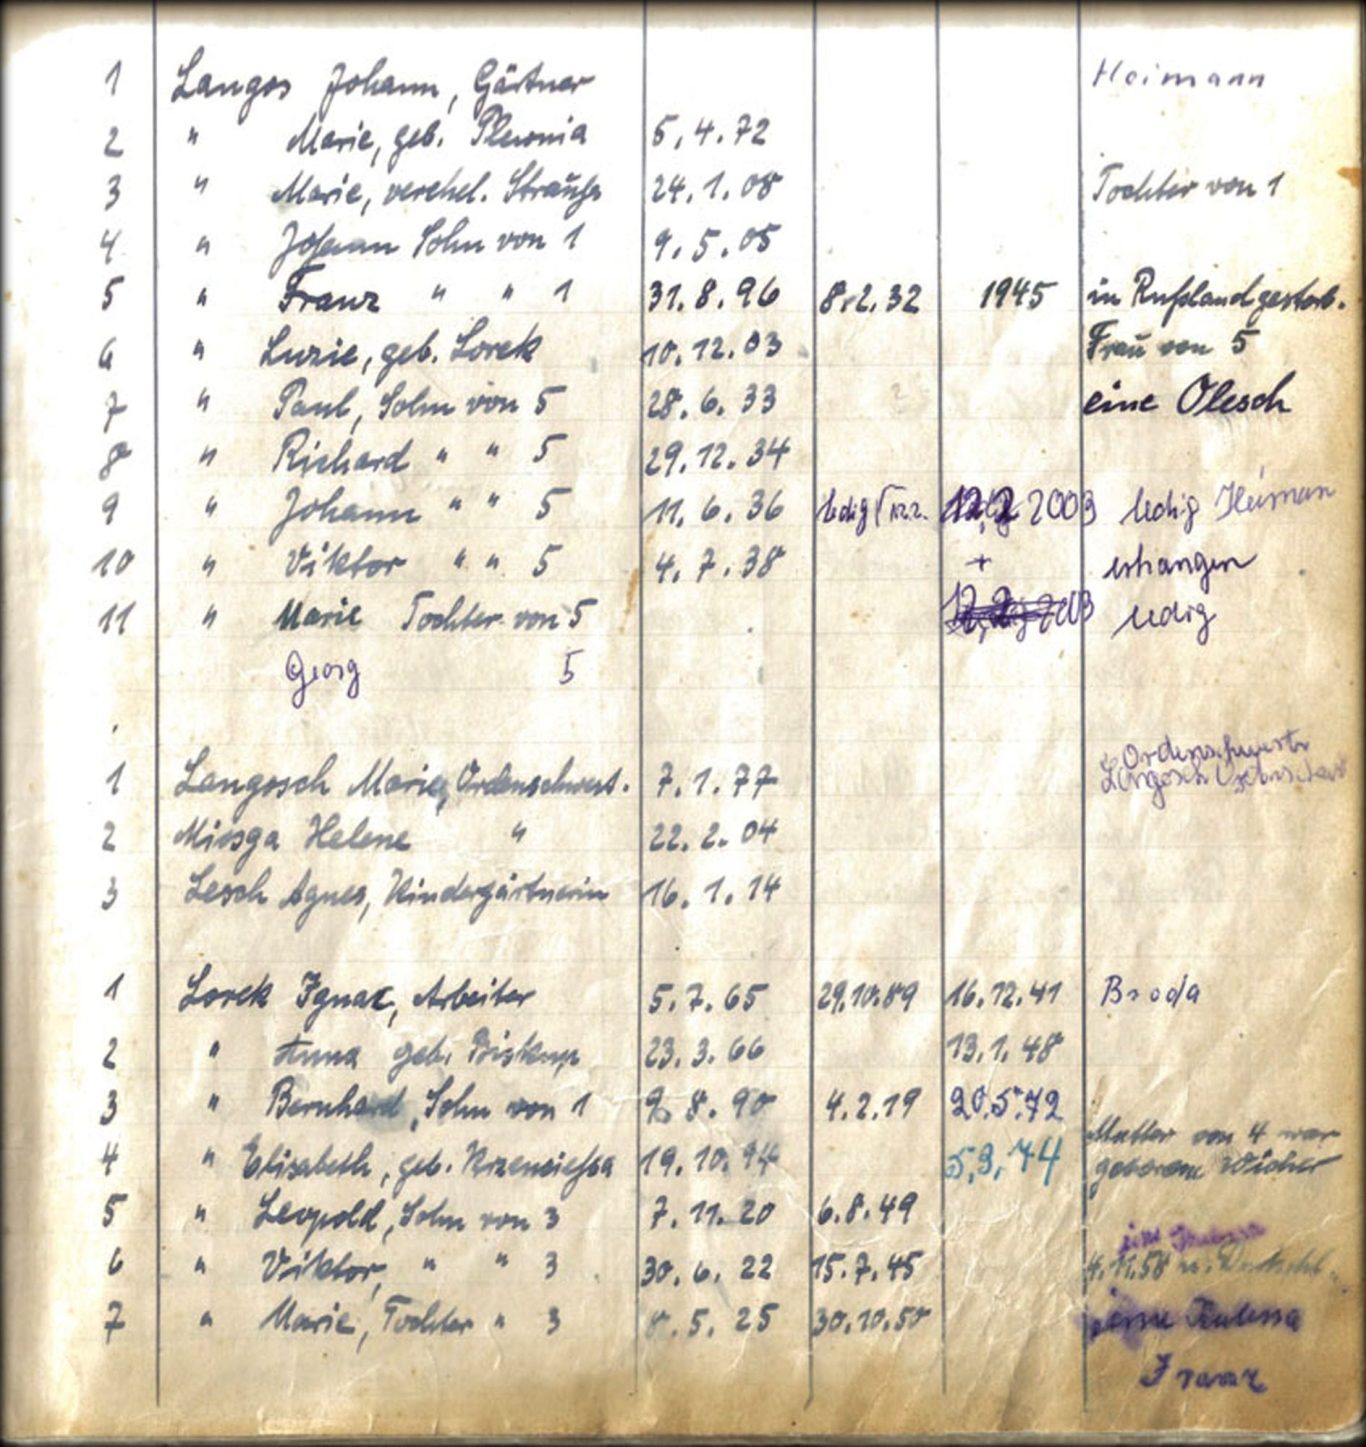 1 Langos Johann, Gärtner Heimann
2 " Marie, geb. Plewnia 5.4.72
3 " Marie, verehel. Strauß 24.1.08 Tochter von 1
4 " Johann Sohn von 1 9.5.05
5 " Franz " " 1 31.8.96 8.2.32 1945 in Rußland gestorb.
6 " Luzie, geb. Lorek 10.12.03 Frau von 5
7 " Paul, Sohn von 5 28.6.33 eine Olesch
8 " Richard " " 5 29.12.34
9 " Johann " " 5 11.6.36 ledig 2003 ledig Heiman
10 " Viktor " " 5 4.7.38 + erhangen
11 " Marie Tochter von 5 ledig
Georg 5
Ordensschwestr
1 Langosch Marie, Ordenschwest. 7.1.77 Langosch
2 Miosga Helene " 22.2.04
3 Lesch Agnes, Kindergärtnerin 16.1.14
1 Lorek Ignaz, Arbeiter 5.7.65 29.10.89 16.12.41 Broda
2 " Anna geb. Biskup 23.3.66 13.1.48
3 " Bernhard, Sohn von 1 8.90 4.2.19 20.5.72
Mutter von 4 war
4 " Elisabeth, geb. 19.10.94 5.9.74 geborene Wicher
5 " Leopold, Sohn von 3 7.11.20 6.8.49
6 " Viktor, " " 3 30.6.22 15.7.45 4.11.58 n.
7 " Marie, Tochter " 3 5.25 30.10.50
Franz